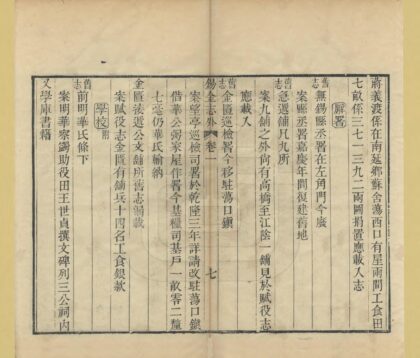 蔣義渡係在南延鄉蘇舍蕩西口有屋兩間工食田
七畝係三七一三九二兩圖捐置應載入志
廨署
舊志無錫縣丞署在左角門今廢
案縣丞署嘉慶年間復建舊地
急遞鋪凡九所
案九鋪之外尚有高橋至江陰一鋪見於賦役志
應載入
舊志金匱巡檢署今移駐蕩口鎮
錫金志外 卷一 七
案望亭巡檢司署於乾隆三年詳請改駐蕩口鎮
借華公弼家屋作署今基糧司基戶一畝零二釐
七毫仍華氏輸納
金匱法道公文鋪所舊志漏載
案賦役志金匱有鋪兵十四名工食銀款
學校附
舊志前明華氏條下
案明華察蠲助役田王世貞撰文碑列三公祠內
又學庫書籍